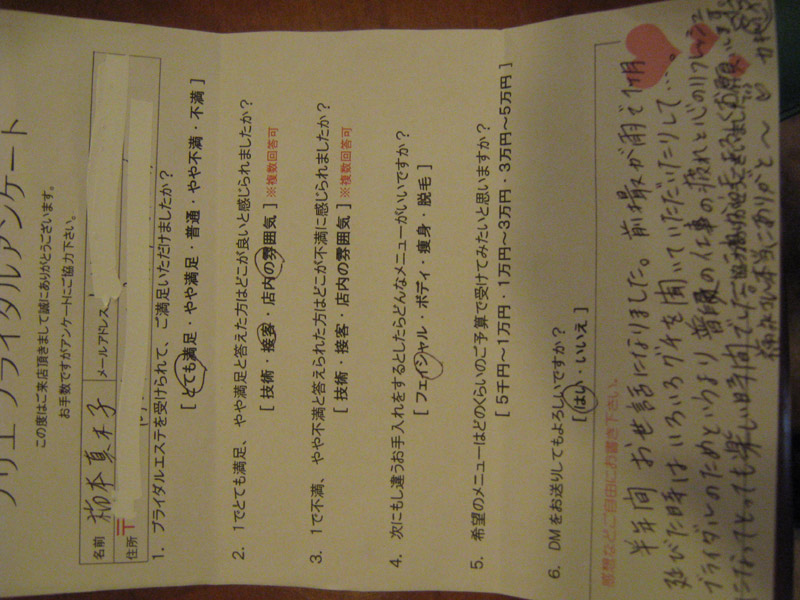 ブライダルアンケート
この度はご来店頂きまして誠にありがとうございます。
お手数ですがアンケートにご協力下さい。
名前 柳本真木子 メールアドレス
住所 〒
1. ブライダルエステを受けられて、ご満足いただけましたか?
[ とても満足・やや満足・普通・やや不満・不満 ]
2. 1でとても満足、やや満足と答えた方はどこが良いと感じられましたか?
[ 技術・接客・店内の雰囲気 ] ※複数回答可
3. 1で不満、やや不満と答えられた方はどこが不満に感じられましたか?
[ 技術・接客・店内の雰囲気 ] ※複数回答可
4. 次にもし違うお手入れをするとしたらどんなメニューがいいですか?
[ フェイシャル・ボディ・痩身・脱毛 ]
5. 希望のメニューはどのくらいのご予算で受けてみたいと思いますか?
[ 5千円～1万円・1万円～3万円・3万円～5万円 ]
6. DMをお送りしてもよろしいですか?
[ はい・いいえ ]
感想などご自由にお書き下さい。
半年間お世話になりました。前撮が雨で1ヶ月
延びた時はいろいろグチを聞いていただいたりして…。
ブライダルのためというより普段の仕事の疲れと心のリフレッシュ
になってとっても楽しい時間でした
本当にありがと～